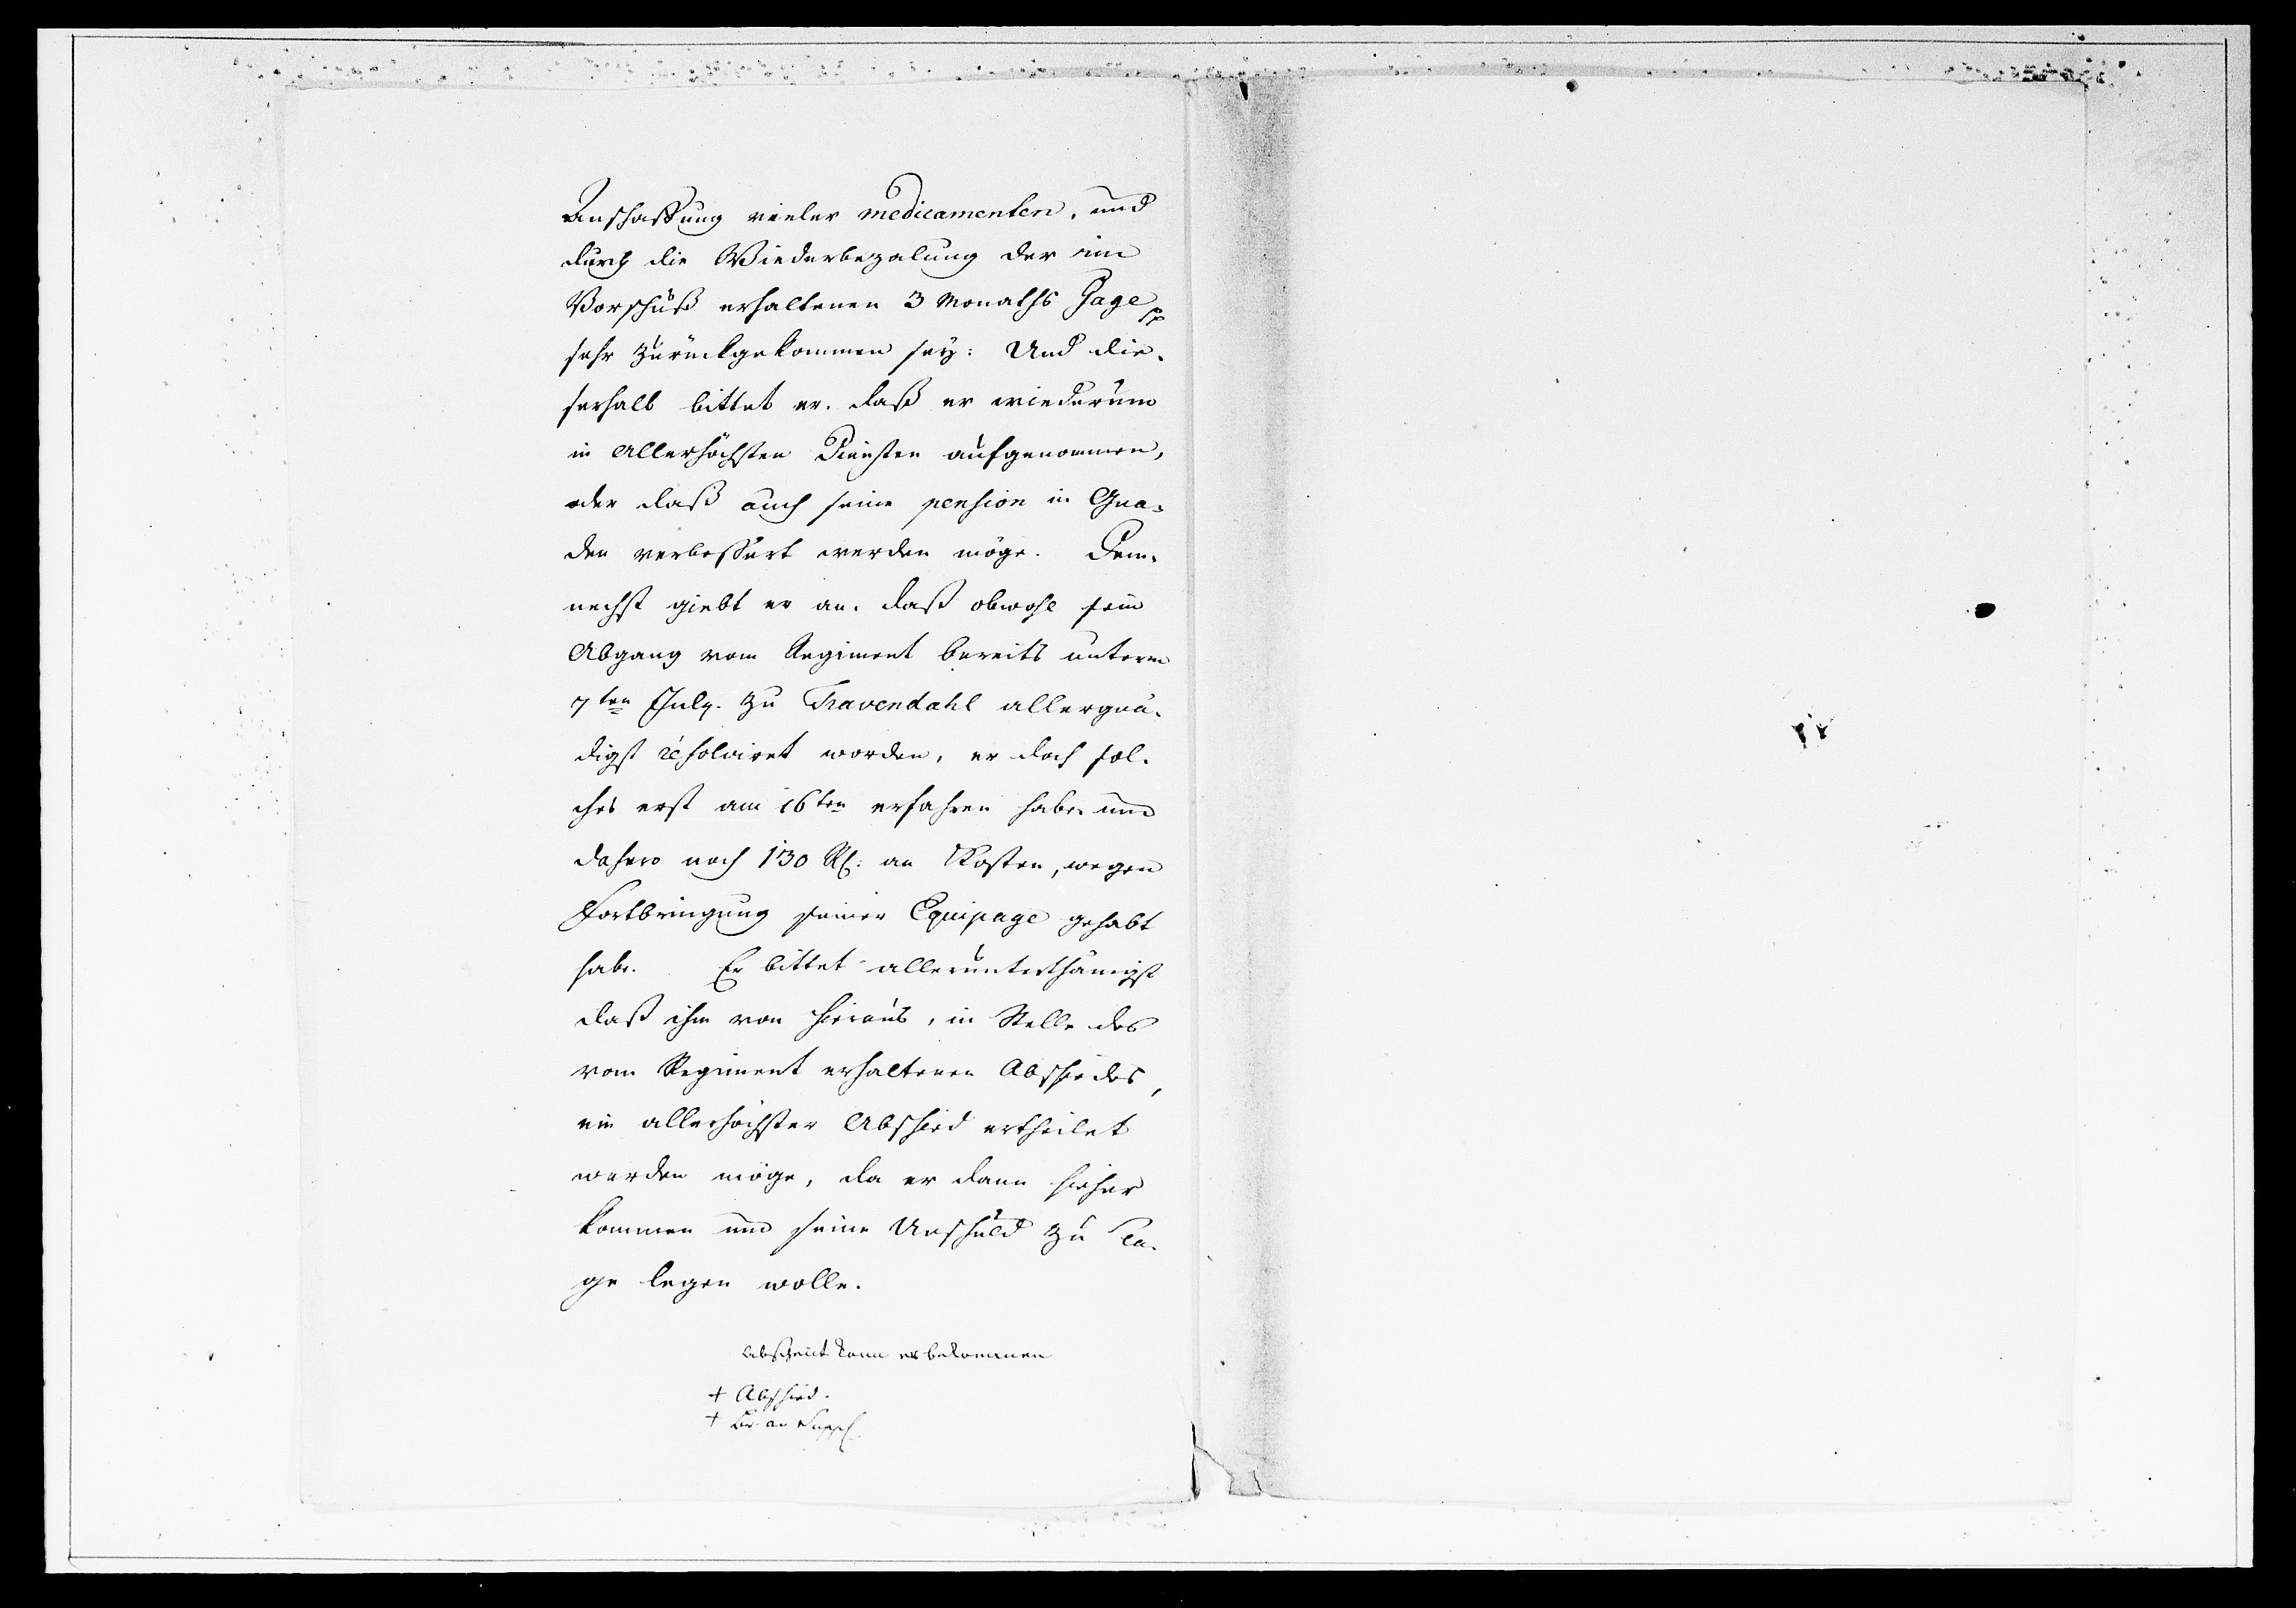 Anschaffung vieler medicamenten, und
durch die Wiederbezalung der im
Vorschuß erhaltenen 3 Monaths Gage pp
sehr zurückgekommen sey: Und die-
serhalb bittet er, daß er wiederum
in Allerhöchsten Diensten aufgenommen,
oder daß auch seine pension in Gna-
den verbessert werden möge. Dem-
nechst giebt er an, daß obwohl sein
Abgang vom Regiment bereits unterm
7ten July. zu Travendahl allergnä-
digst résolviret worden, er doch sol-
ches erst am 16ten erfahren habe und
dahero noch 130 Rth: an Kosten, wegen
Fortbringung seiner Equipage gehabt
habe. Er bittet allerunterthänigst
daß ihm von hieraus, in Stelle des
vom Regiment erhaltenen Abschiedes,
ein allerhöchster Abschied ertheilet
werden möge, da er dann hieher
kommen und seine Unschuld zu Ta-
ge legen wolle.
Abscheit kann er bekommen
+ Abschied.
+ an Suppl.